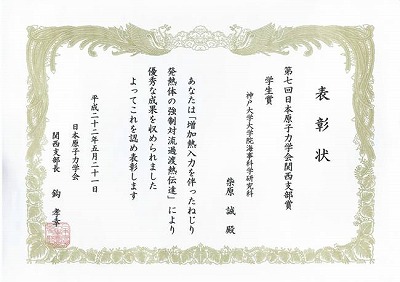 表彰状
第七回日本原子力学会関西支部賞
学生賞
神戸大学大学院海事科学研究科
柴原 誠 殿
あなたは「増加熱入力を伴ったねじり
発熱体の強制対流過渡熱伝達」により
優秀な成果を収められました
よってこれを認め表彰します
平成二十二年五月二十一日
日本原子力学会
関西支部長 鉤 孝幸